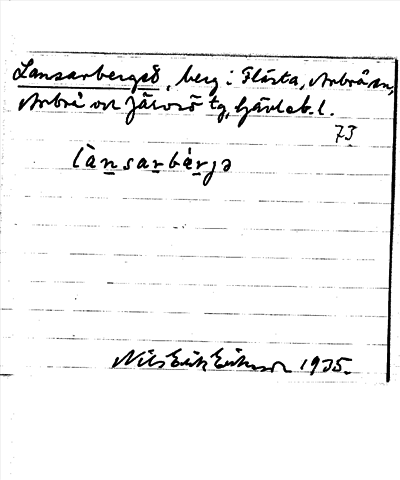 Lansarberget, berg i Flästa, Arbrå sn,
Arbrå och Järvsö tg, Gävleb. l.
73
lànsarbàrjə
Nils Erik Eriksson 1935.